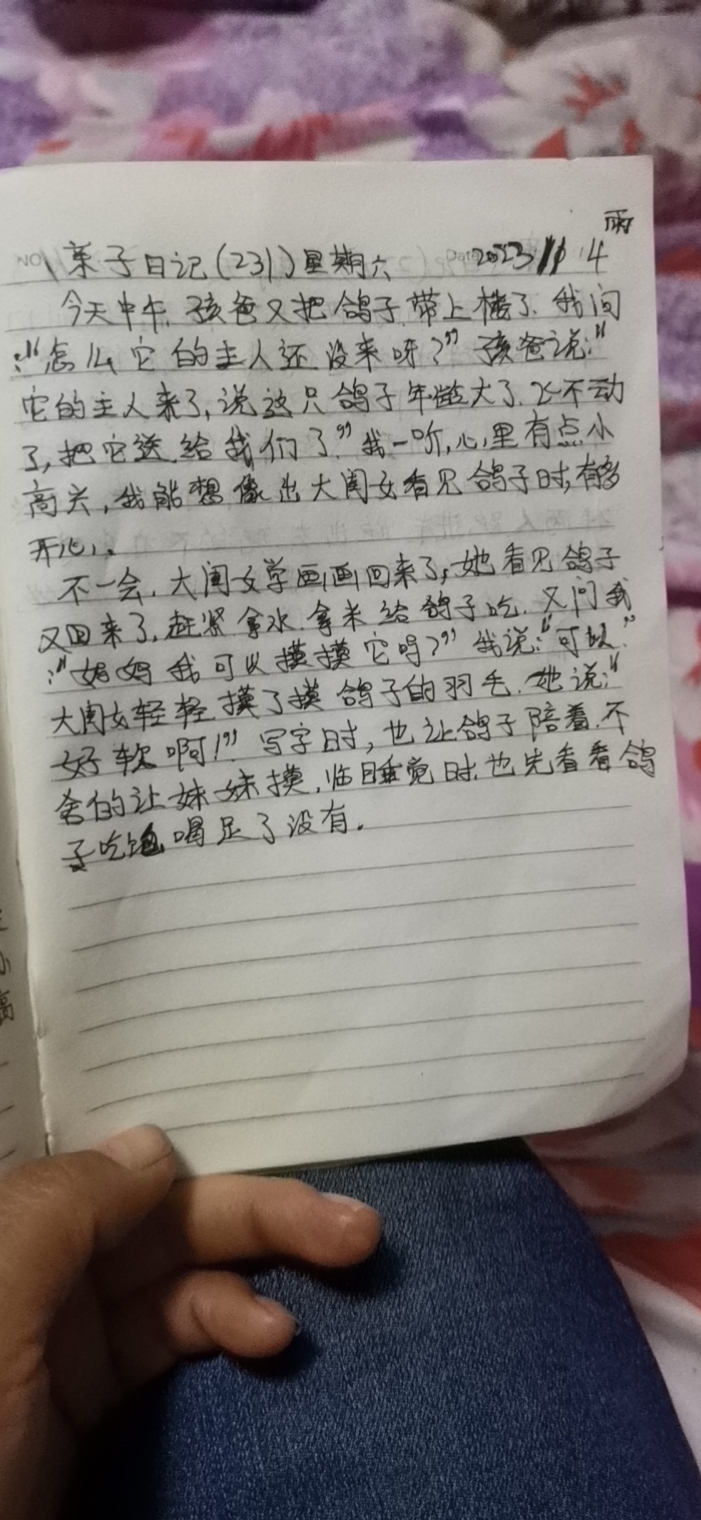 雨
亲子日记(231)星期六 2023 11 4
今天中午,孩爸又把鸽子带上楼了.我问
:"怎么它的主人还没来呀?"孩爸说:"
它的主人来了,说这只鸽子年龄大了.飞不动
了,把它送给我们了"我一听,心里有点小
高兴,我能想像出大闺女看见鸽子时,有多
开心。
不一会,大闺女学画画回来了,她看见鸽子
又回来了,赶紧拿水拿米给鸽子吃.又问我
:"妈妈我可以摸摸它吗?"我说:"可以."
大闺女轻轻摸了摸鸽子的羽毛.她说:"
好软啊!"写字时,也让鸽子陪着.不
舍的让妹妹摸,临睡觉时,也先看看鸽
子吃饱喝足了没有.
小
高